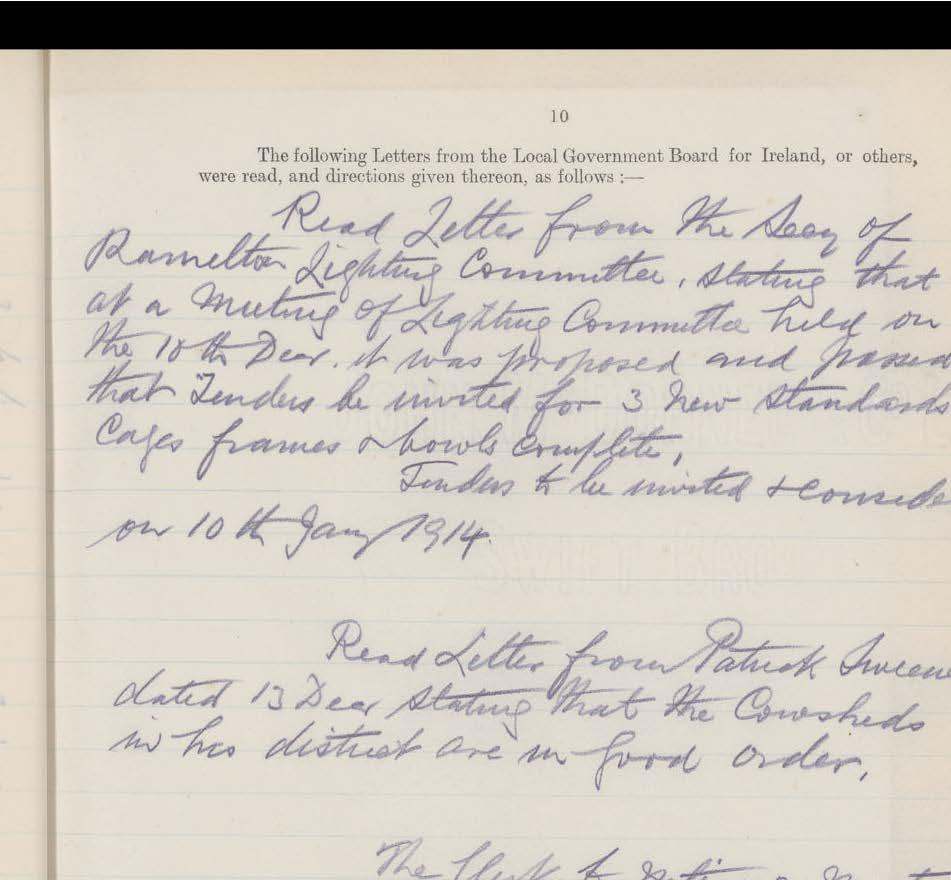 10
The following Letters from the Local Government Board for Ireland, or others,
were read, and directions given thereon, as follows :—
Read Letter from the Secy of
Ramelton Lighting Committee, stating that
at a Meeting of Lighting Committee held on
the 10th Decr. it was proposed and passed
that Tenders be invited for 3 new Standards
Cages frames & bowls complete,
Tenders to be invited & conside
on 10th Jany 1914.
Read Letter from Patrick Sweene
dated 13 Decr stating that the Cowsheds
in his district are in good order,
The Clerk to